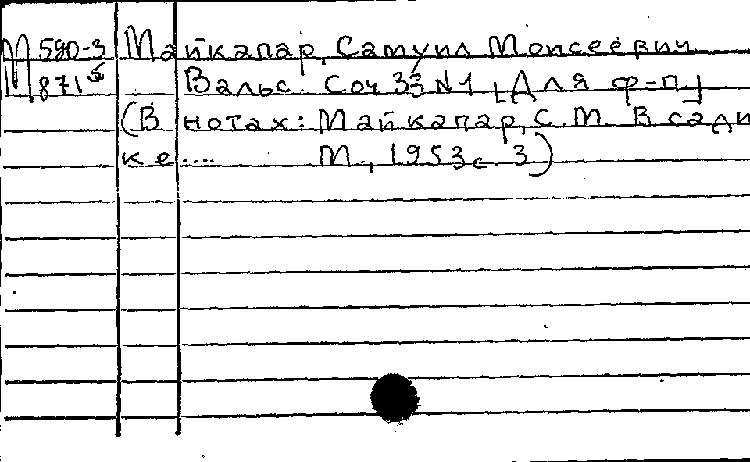 М 590-3 Майкапар, Самуил Моисеевич
М, 871⁵ Вальс. Соч 33 N 1 [Для ф-п]
(В нотах: Майкапар, С. М. В сади
ке.... М., 1953 с. 3)